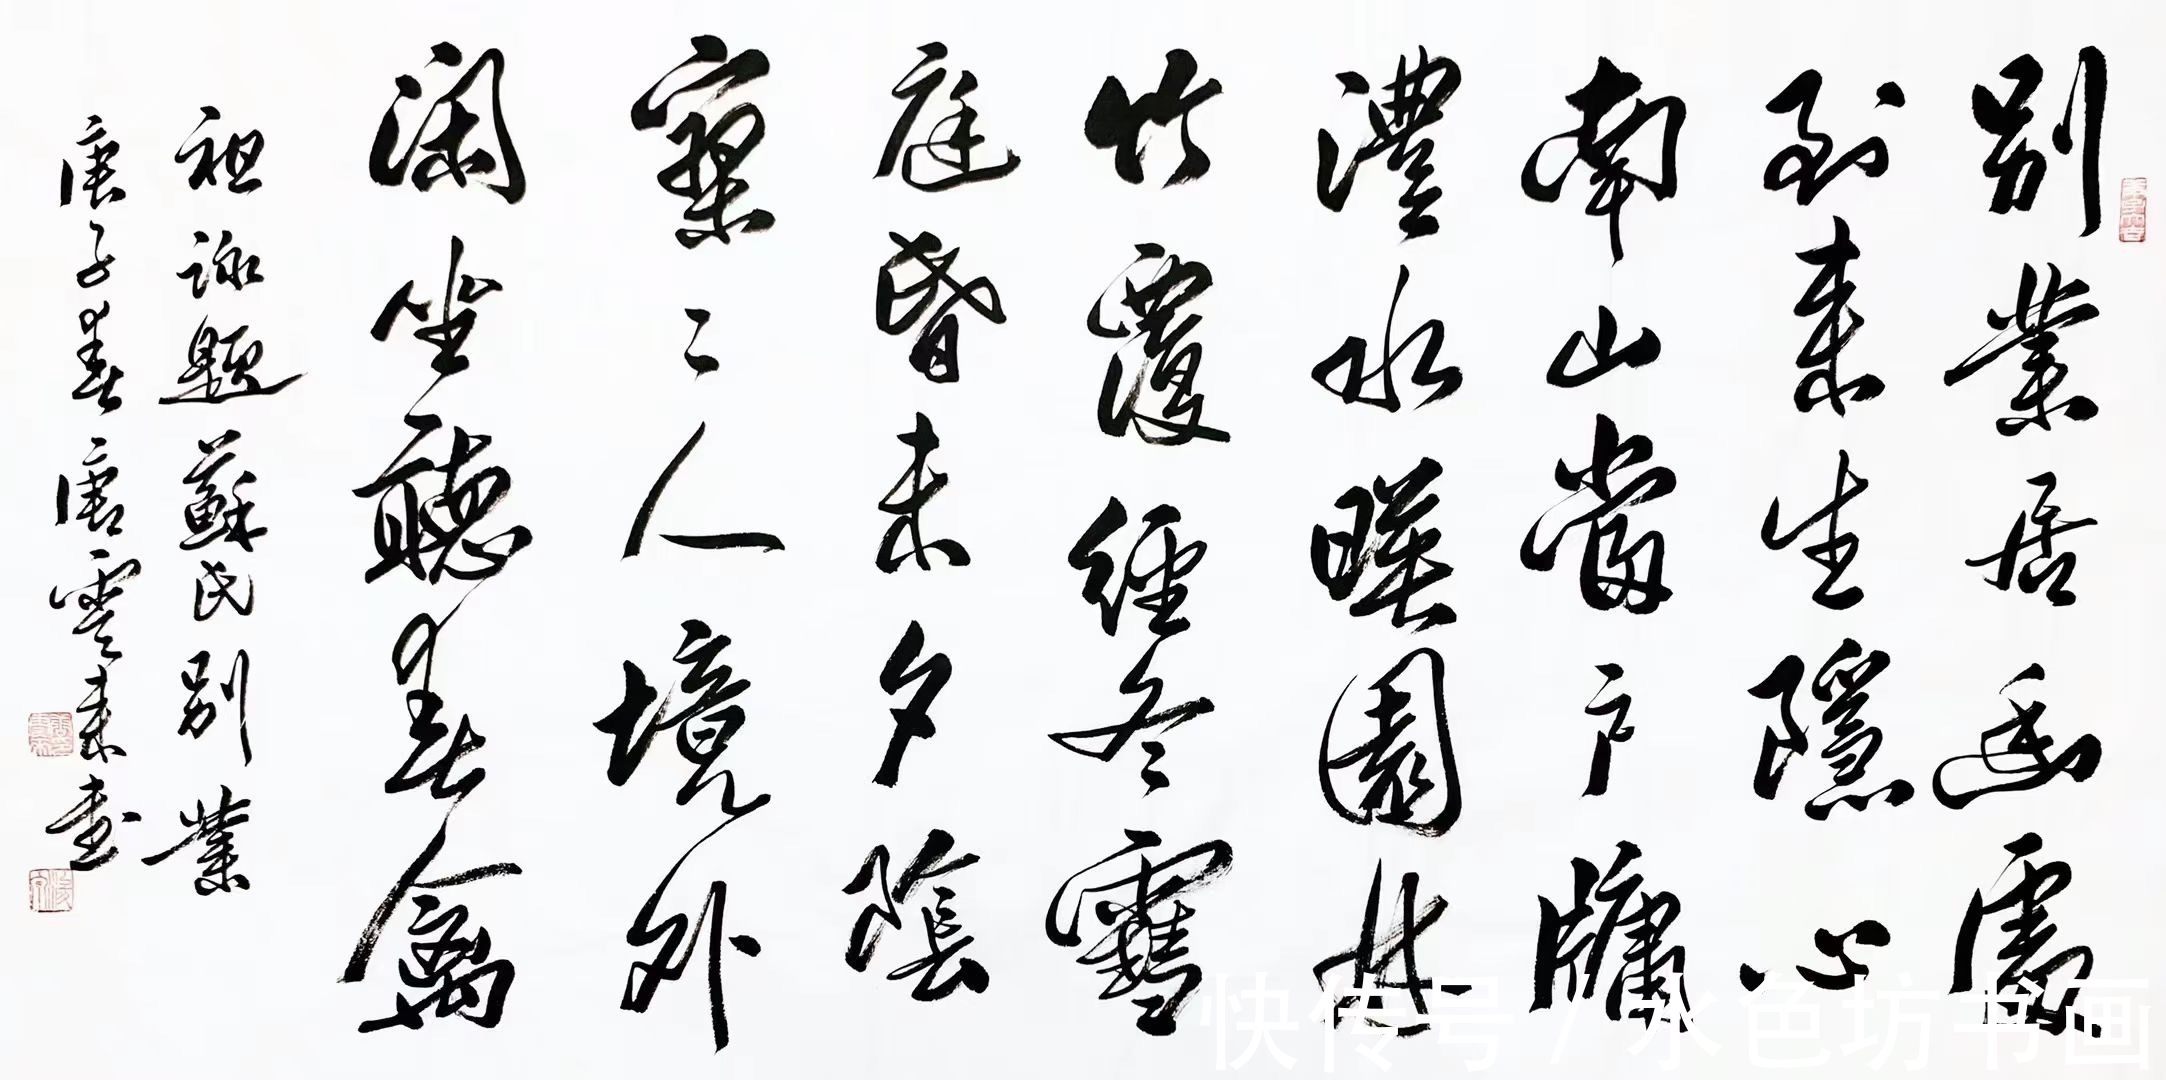 別業居幽處
到來生隱心
南山當戶牖
灃水暎園林
竹覆經冬雪
庭昬未夕陰
寥〻人境外
閑坐聽春禽
祖詠題蘇氏別業
庚子春唐雲來書
快传号 / 水色坊书画